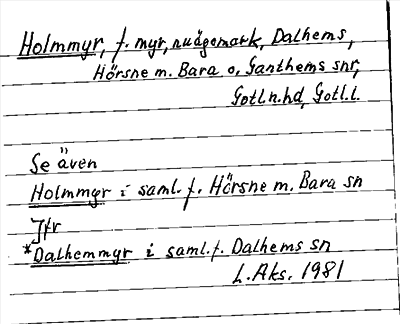 Holmmyr, f. myr, nu ägomark, Dalhems,
Hörsne m. Bara o. Ganthems snr,
Gotl.n.hd, Gotl.l.
Se även
Holmmyr i saml. f. Hörsne m. Bara sn
Jfr
*Dalhemmyr i saml. f. Dalhems sn
L. Aks. 1981